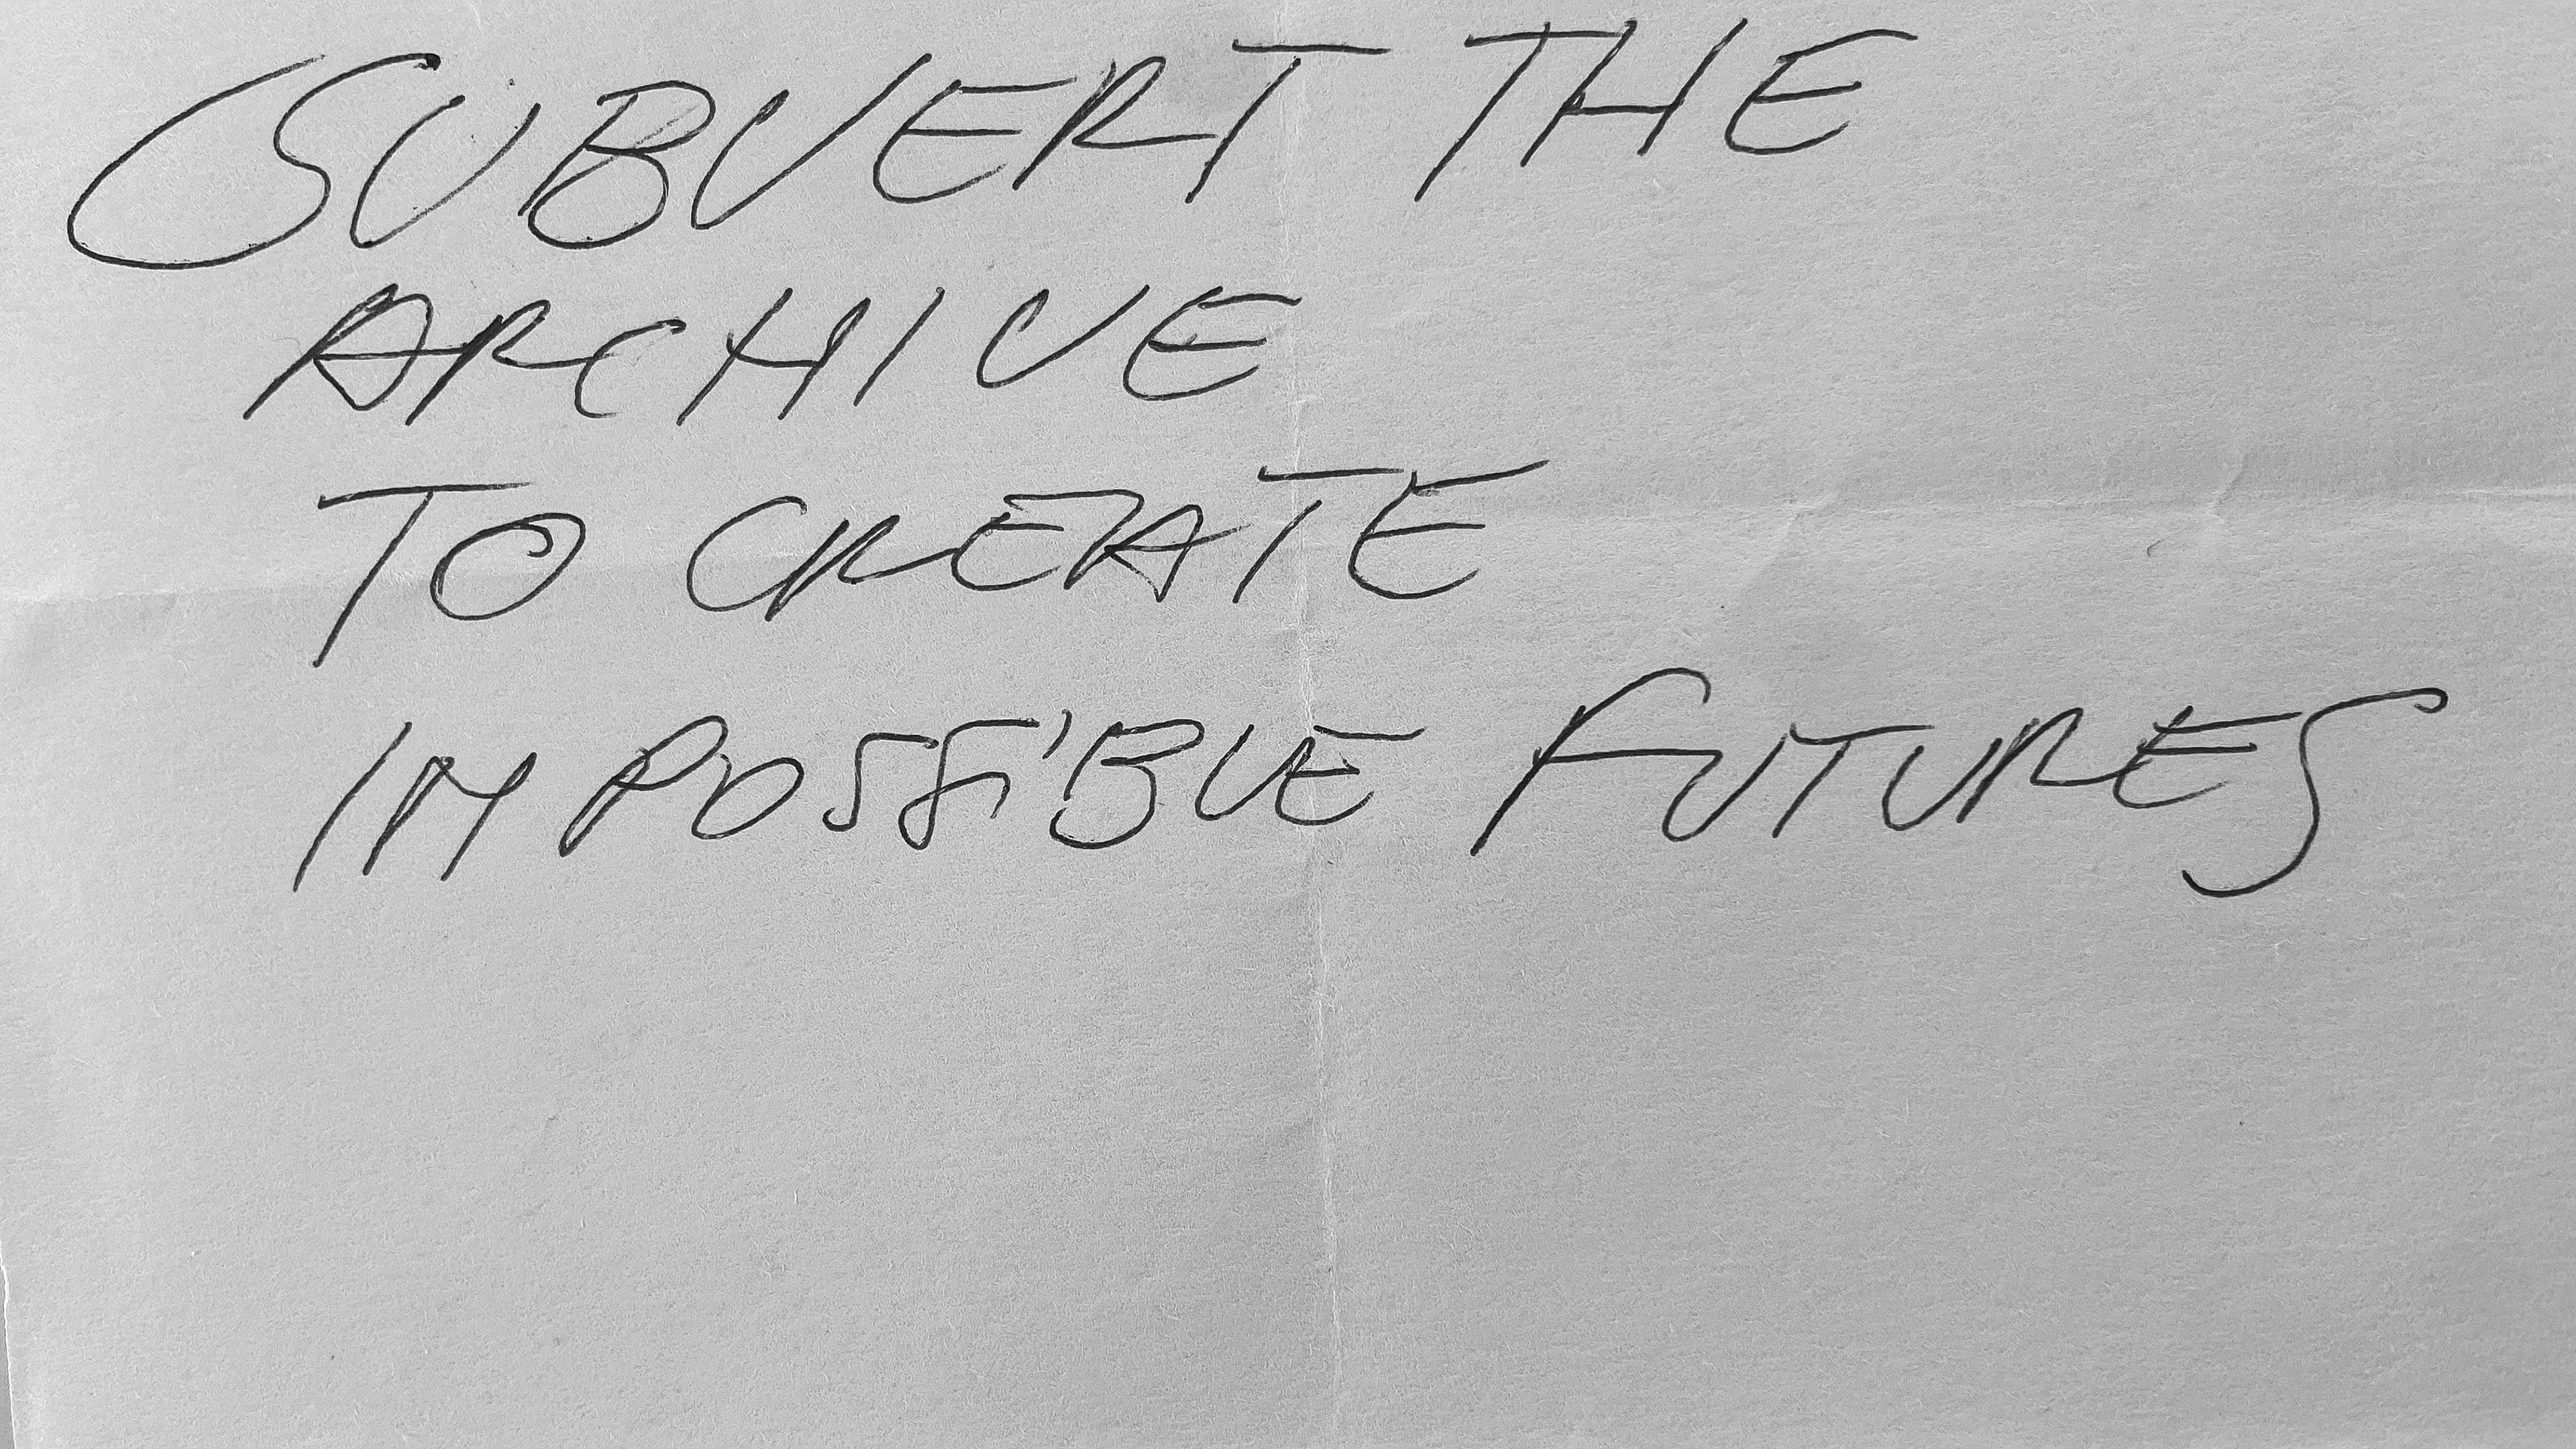 SUBVERT THE
ARCHIVE
TO CREATE
IMPOSSIBLE FUTURES